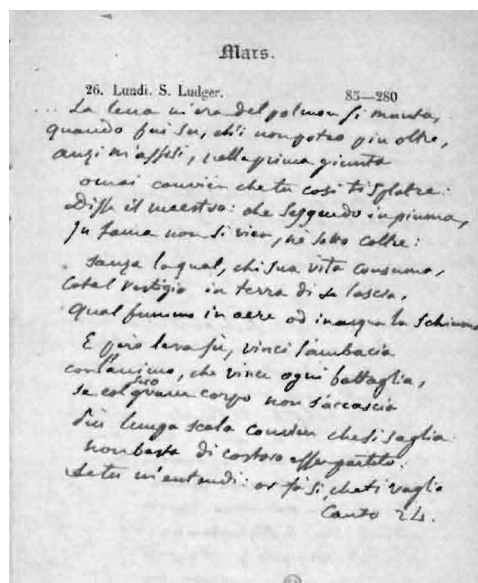 Mars.
26. Lundi. S. Ludger. 85—280
... La lena m'era del polmon si munta,
quando fui su, ch'i non potea piu oltre,
anzi m'assisi, nella prima giunta
omai convien che tu cosi ti spoltre:
Disse il maestro: che seggendo in piuma,
In fama non si vien, nè sotto coltre:
sanza la qual, chi sua vita consuma,
Cotal vestigio in terra di se lascia,
Qual fummo in aere od in acqua la schiuma
E però leva su, vinci l'ambascia
con l'animo, che vince ogni battaglia,
se col suo grave corpo non s'accascia
Più lunga scala convien che si saglia:
non basta di costoro esser partito:
Se tu m'entendi: or fa si, che ti vaglia
Canto 24.